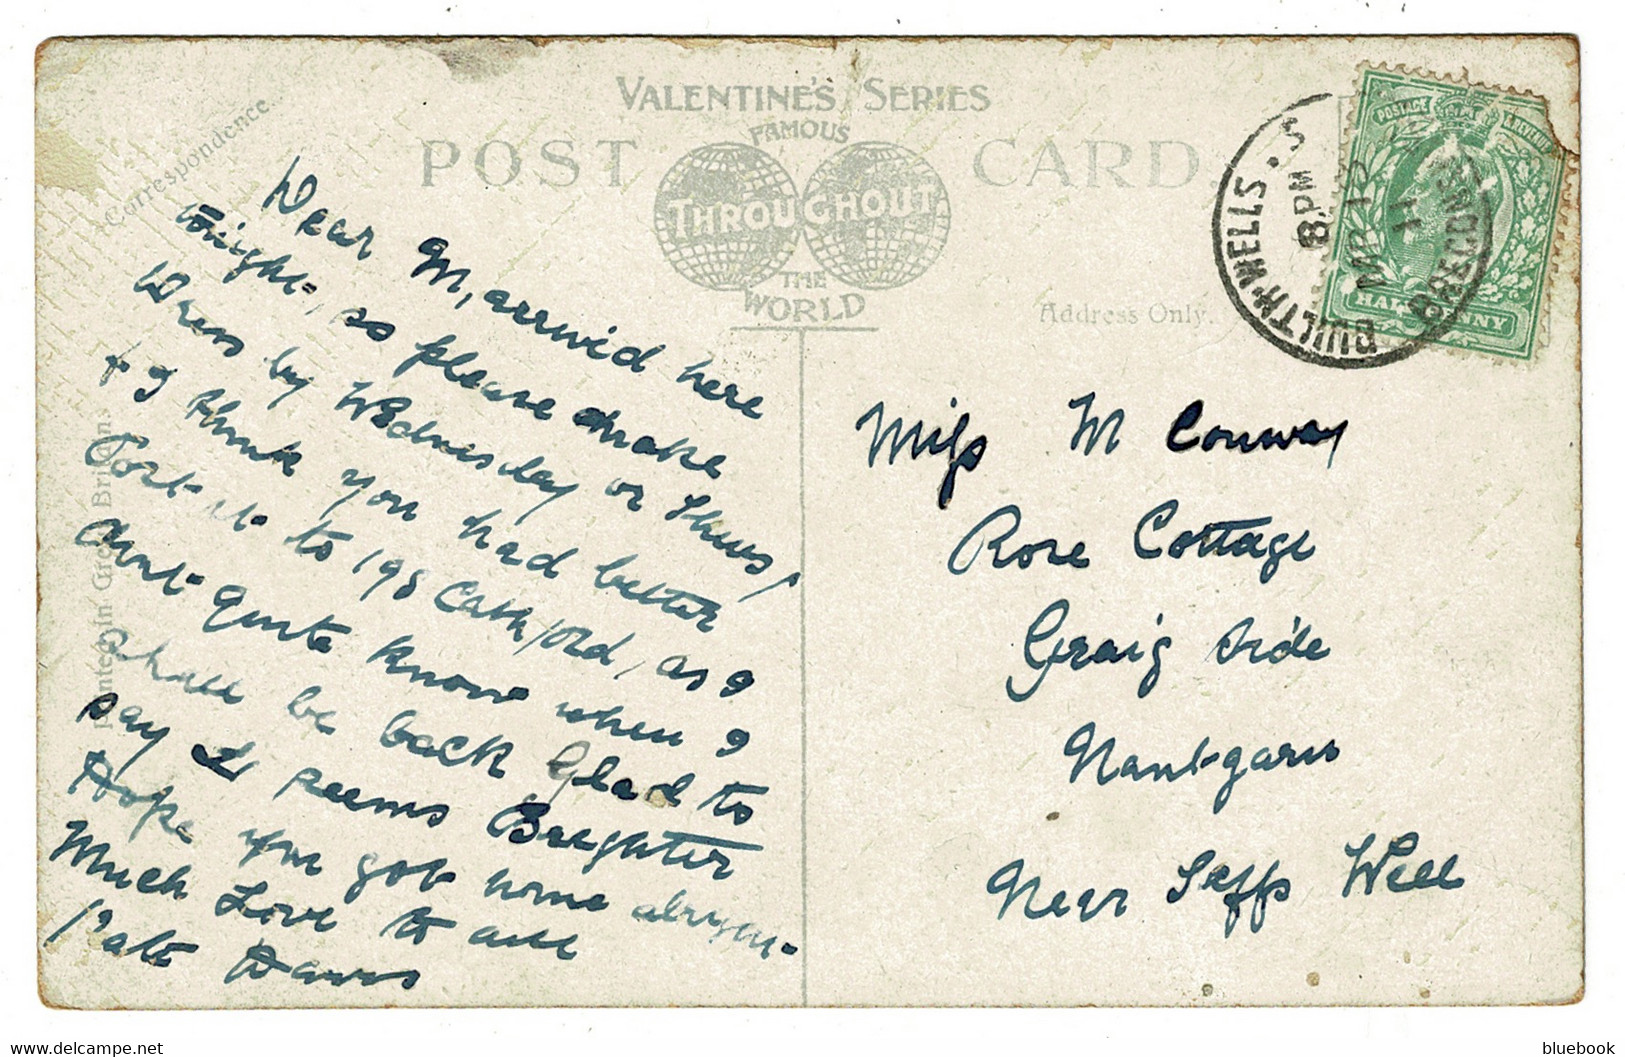 VALENTINE'S SERIES
FAMOUS
POST CARD.
THROUGHOUT
THE
WORLD
Correspondence
Address Only.
Printed in Great Britain
BUILTH·WELLS · S
BRECONSH
8. PM
MR 1
11
POSTAGE & REVENUE
HALFPENNY
Dear M, arrivid here
tonight, so please make
Dress by Wednisday or Thurs,
+ I think you had better
Post it to 198 Cathford, as I
dont Quite know when I
shall be back Glad to
say It seems Breghter
Hope you got home
Much Love to all
Miss M Conway
Rose Cottage
Graig Side
Nant-garw
Near Taffs Well
bluebook